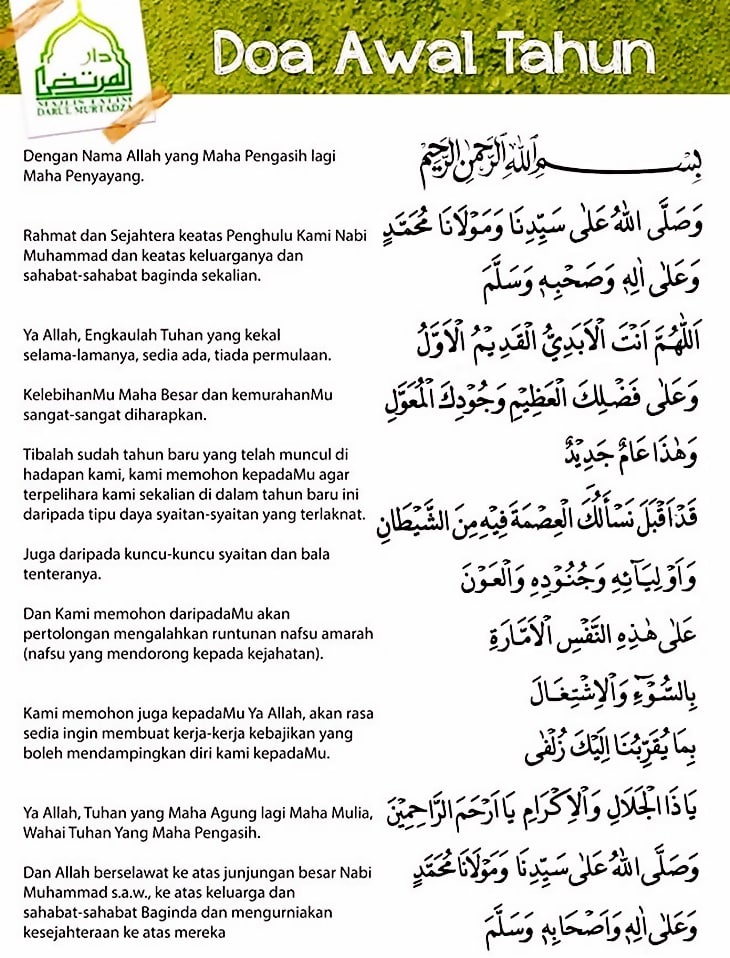 دار
المرتضى
MAJLIS TA'LIM
DARUL MURTADZA
Doa Awal Tahun
Dengan Nama Allah yang Maha Pengasih lagi
Maha Penyayang.
Rahmat dan Sejahtera keatas Penghulu Kami Nabi
Muhammad dan keatas keluarganya dan
sahabat-sahabat baginda sekalian.
Ya Allah, Engkaulah Tuhan yang kekal
selama-lamanya, sedia ada, tiada permulaan.
KelebihanMu Maha Besar dan kemurahanMu
sangat-sangat diharapkan.
Tibalah sudah tahun baru yang telah muncul di
hadapan kami, kami memohon kepadaMu agar
terpelihara kami sekalian di dalam tahun baru ini
daripada tipu daya syaitan-syaitan yang terlaknat.
Juga daripada kuncu-kuncu syaitan dan bala
tenteranya.
Dan Kami memohon daripadaMu akan
pertolongan mengalahkan runtunan nafsu amarah
(nafsu yang mendorong kepada kejahatan).
Kami memohon juga kepadaMu Ya Allah, akan rasa
sedia ingin membuat kerja-kerja kebajikan yang
boleh mendampingkan diri kami kepadaMu.
Ya Allah, Tuhan yang Maha Agung lagi Maha Mulia,
Wahai Tuhan Yang Maha Pengasih.
Dan Allah berselawat ke atas junjungan besar Nabi
Muhammad s.a.w., ke atas keluarga dan
sahabat-sahabat Baginda dan mengurniakan
kesejahteraan ke atas mereka
بِسْـــمِ اللهِ الرَّحْمٰنِ الرَّحِيْمِ
وَصَلَّى اللهُ عَلٰى سَيِّدِنَا وَمَوْلَانَا مُحَمَّدٍ
وَعَلٰى اٰلِهٖ وَصَحْبِهٖ وَسَلَّمَ
اَللّٰهُمَّ اَنْتَ الْاَبَدِيُّ الْقَدِيْمُ الْاَوَّلُ
وَعَلٰى فَضْلِكَ الْعَظِيْمِ وَجُوْدِكَ الْمُعَوَّلِ
وَهٰذَا عَامٌ جَدِيْدٌ
قَدْ اَقْبَلَ نَسْأَلُكَ الْعِصْمَةَ فِيْهِ مِنَ الشَّيْطَانِ
وَاَوْلِيَآئِهٖ وَجُنُوْدِهٖ وَالْعَوْنَ
عَلٰى هٰذِهِ النَّفْسِ الْاَمَّارَةِ
بِالسُّوْٓءِ وَالْاِشْتِغَالَ
بِمَا يُقَرِّبُنَا اِلَيْكَ زُلْفٰى
يَا ذَا الْجَلَالِ وَالْاِكْرَامِ يَا اَرْحَمَ الرَّاحِمِيْنَ
وَصَلَّى اللهُ عَلٰى سَيِّدِنَا وَمَوْلَانَا مُحَمَّدٍ
وَعَلٰى اٰلِهٖ وَاَصْحَابِهٖ وَسَلَّمَ